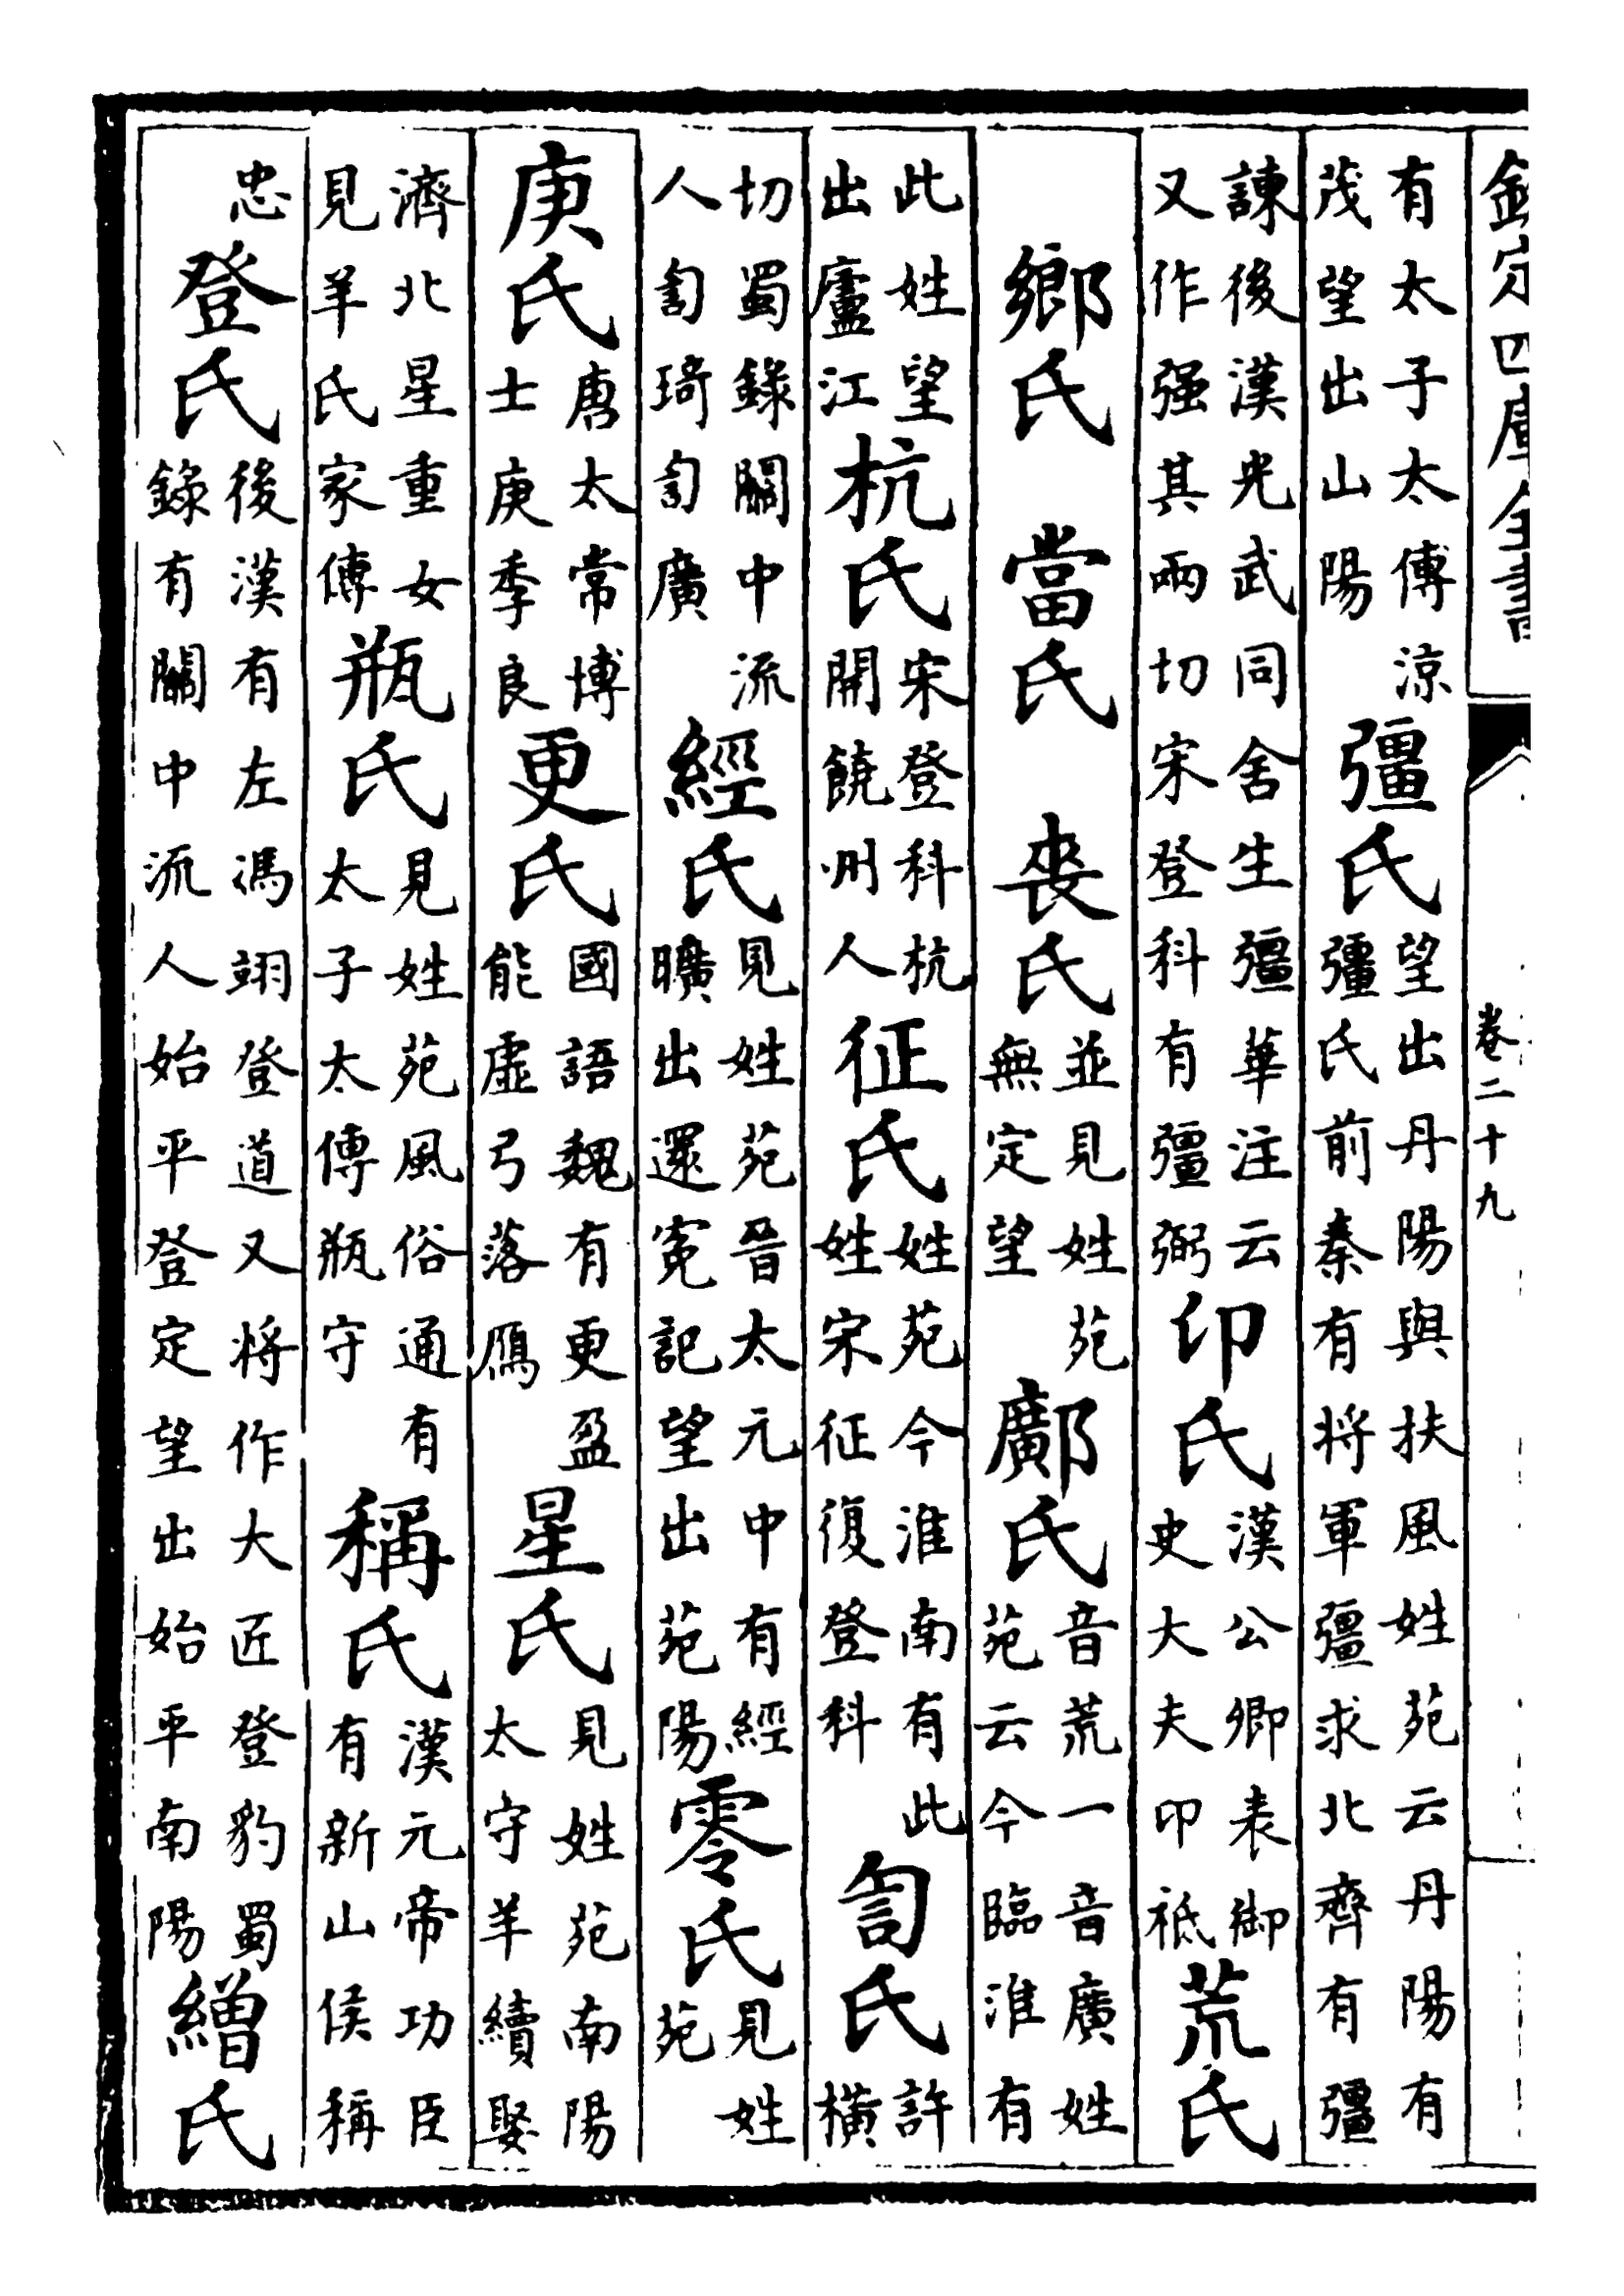 欽定四庫全書 卷二十九
有太子太傅涼茂望出山陽 彊氏 望出丹陽與扶風姓苑云丹陽有彊氏前秦有将軍彊求北齊有彊
諫後漢光武同舍生彊華注云又作强其兩切宋登科有彊弼 印氏 漢公卿表御史大夫印祗 荒氏
鄉氏 當氏 喪氏 並見姓苑無定望 鄺氏 音荒一音廣姓苑云今臨淮有
此姓望出廬江 杭氏 宋登科杭開饒州人 征氏 姓苑今淮南有此姓宋征復登科 訇氏 許橫
切蜀錄關中流人訇琦訇廣 經氏 見姓苑晉太元中有經曠出還寃記望出苑陽 零氏 見姓苑
庚氏 唐太常博士庚季良 更氏 國語魏有更盈能虛弓落鴈 星氏 見姓苑南陽太守羊續娶
濟北星重女見羊氏家傳 瓶氏 見姓苑風俗通有太子太傅瓶守 稱氏 漢元帝功臣有新山侯稱
忠 登氏 後漢有左馮翊登道又将作大匠登豹蜀錄有關中流人始平登定望出始平南陽 繒氏